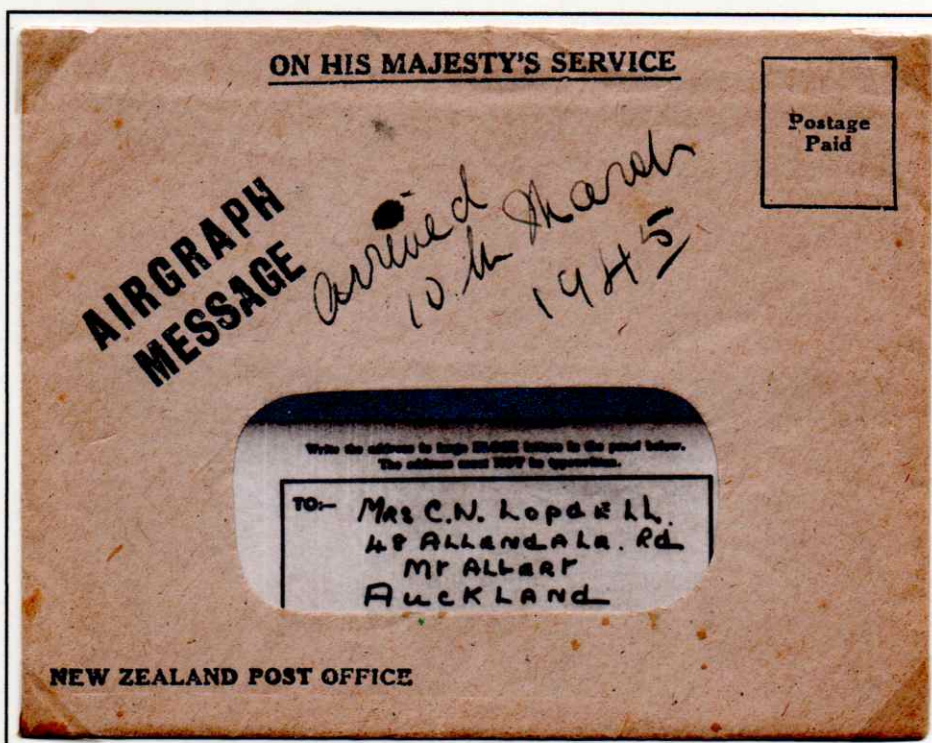 ON HIS MAJESTY'S SERVICE
Postage
Paid
AIRGRAPH
MESSAGE
arrived
10th March
1945
Write the address in large BLOCK letters in the panel below.
The address must NOT be typewritten.
TO:- MRS C.N. LOPDELL.
48 ALLENDALE. Rd
MT ALBERT
AUCKLAND
NEW ZEALAND POST OFFICE